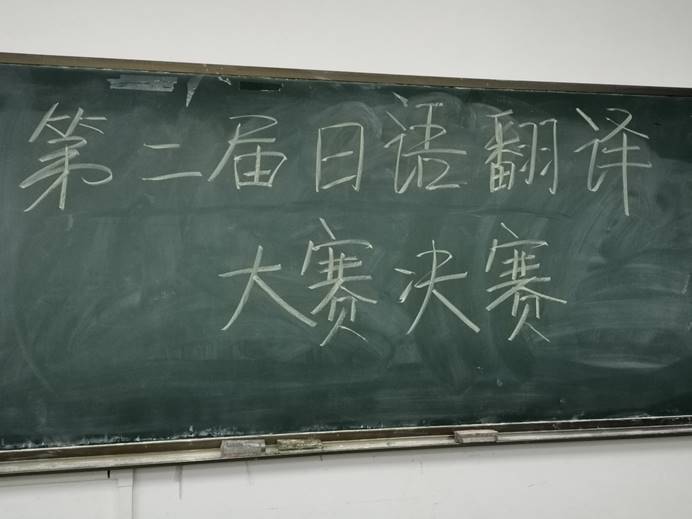 第二届日语翻译
大赛决赛